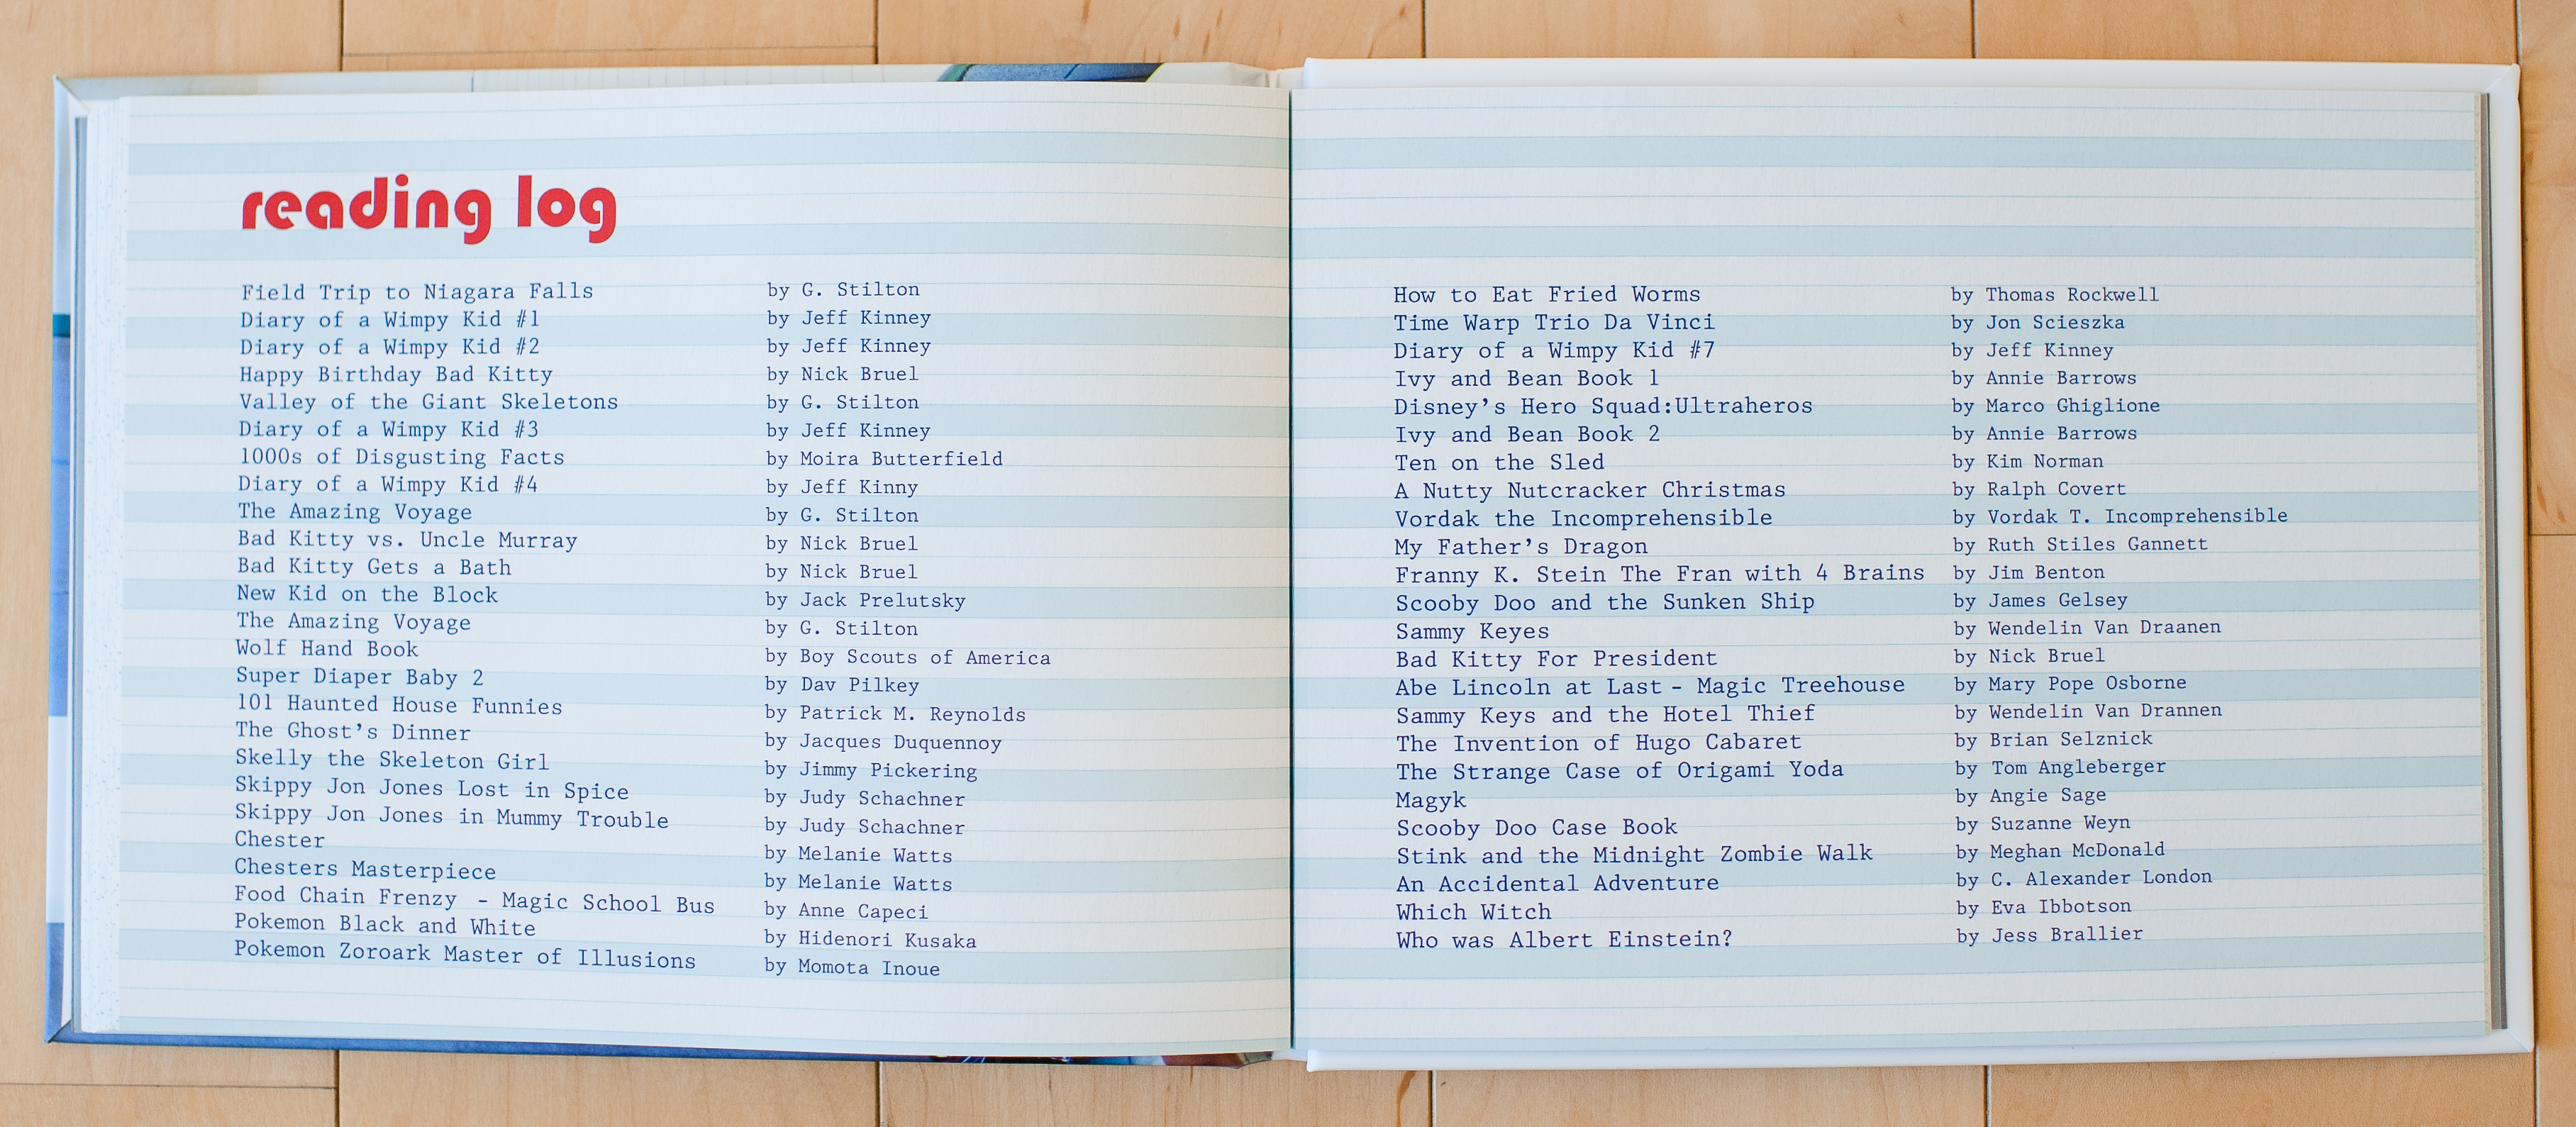 reading log
Field Trip to Niagara Falls by G. Stilton
Diary of a Wimpy Kid #1 by Jeff Kinney
Diary of a Wimpy Kid #2 by Jeff Kinney
Happy Birthday Bad Kitty by Nick Bruel
Valley of the Giant Skeletons by G. Stilton
Diary of a Wimpy Kid #3 by Jeff Kinney
1000s of Disgusting Facts by Moira Butterfield
Diary of a Wimpy Kid #4 by Jeff Kinny
The Amazing Voyage by G. Stilton
Bad Kitty vs. Uncle Murray by Nick Bruel
Bad Kitty Gets a Bath by Nick Bruel
New Kid on the Block by Jack Prelutsky
The Amazing Voyage by G. Stilton
Wolf Hand Book by Boy Scouts of America
Super Diaper Baby 2 by Dav Pilkey
101 Haunted House Funnies by Patrick M. Reynolds
The Ghost's Dinner by Jacques Duquennoy
Skelly the Skeleton Girl by Jimmy Pickering
Skippy Jon Jones Lost in Spice by Judy Schachner
Skippy Jon Jones in Mummy Trouble by Judy Schachner
Chester by Melanie Watts
Chesters Masterpiece by Melanie Watts
Food Chain Frenzy - Magic School Bus by Anne Capeci
Pokemon Black and White by Hidenori Kusaka
Pokemon Zoroark Master of Illusions by Momota Inoue
How to Eat Fried Worms by Thomas Rockwell
Time Warp Trio Da Vinci by Jon Scieszka
Diary of a Wimpy Kid #7 by Jeff Kinney
Ivy and Bean Book 1 by Annie Barrows
Disney's Hero Squad:Ultraheros by Marco Ghiglione
Ivy and Bean Book 2 by Annie Barrows
Ten on the Sled by Kim Norman
A Nutty Nutcracker Christmas by Ralph Covert
Vordak the Incomprehensible by Vordak T. Incomprehensible
My Father's Dragon by Ruth Stiles Gannett
Franny K. Stein The Fran with 4 Brains by Jim Benton
Scooby Doo and the Sunken Ship by James Gelsey
Sammy Keyes by Wendelin Van Draanen
Bad Kitty For President by Nick Bruel
Abe Lincoln at Last - Magic Treehouse by Mary Pope Osborne
Sammy Keys and the Hotel Thief by Wendelin Van Drannen
The Invention of Hugo Cabaret by Brian Selznick
The Strange Case of Origami Yoda by Tom Angleberger
Magyk by Angie Sage
Scooby Doo Case Book by Suzanne Weyn
Stink and the Midnight Zombie Walk by Meghan McDonald
An Accidental Adventure by C. Alexander London
Which Witch by Eva Ibbotson
Who was Albert Einstein? by Jess Brallier